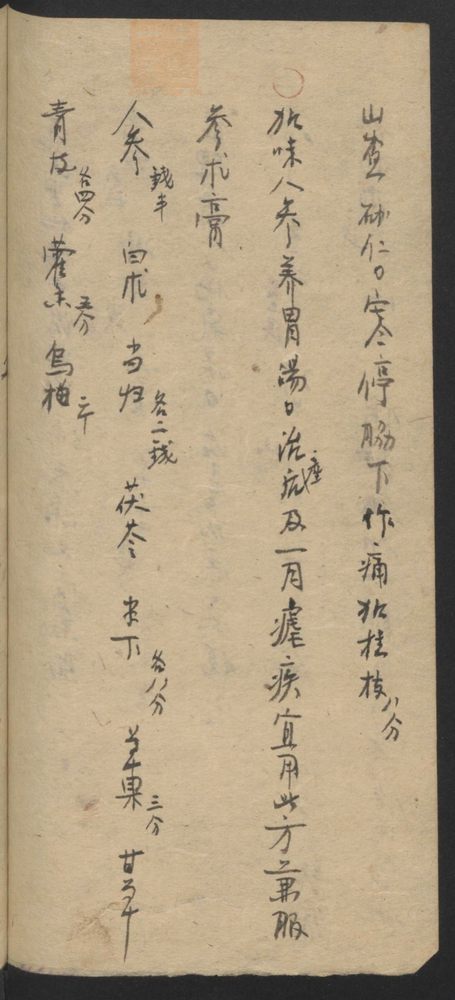 山查砂仁。寒停脇下作痛加桂枝八分
加味人参养胃湯。治瘧及一月瘧疾宜用此方兼服
参术膏
人参錢半 白术 当归各二錢 茯苓 半下各八分 草果三分 甘草
青皮各四分 藿香五分 烏梅二个